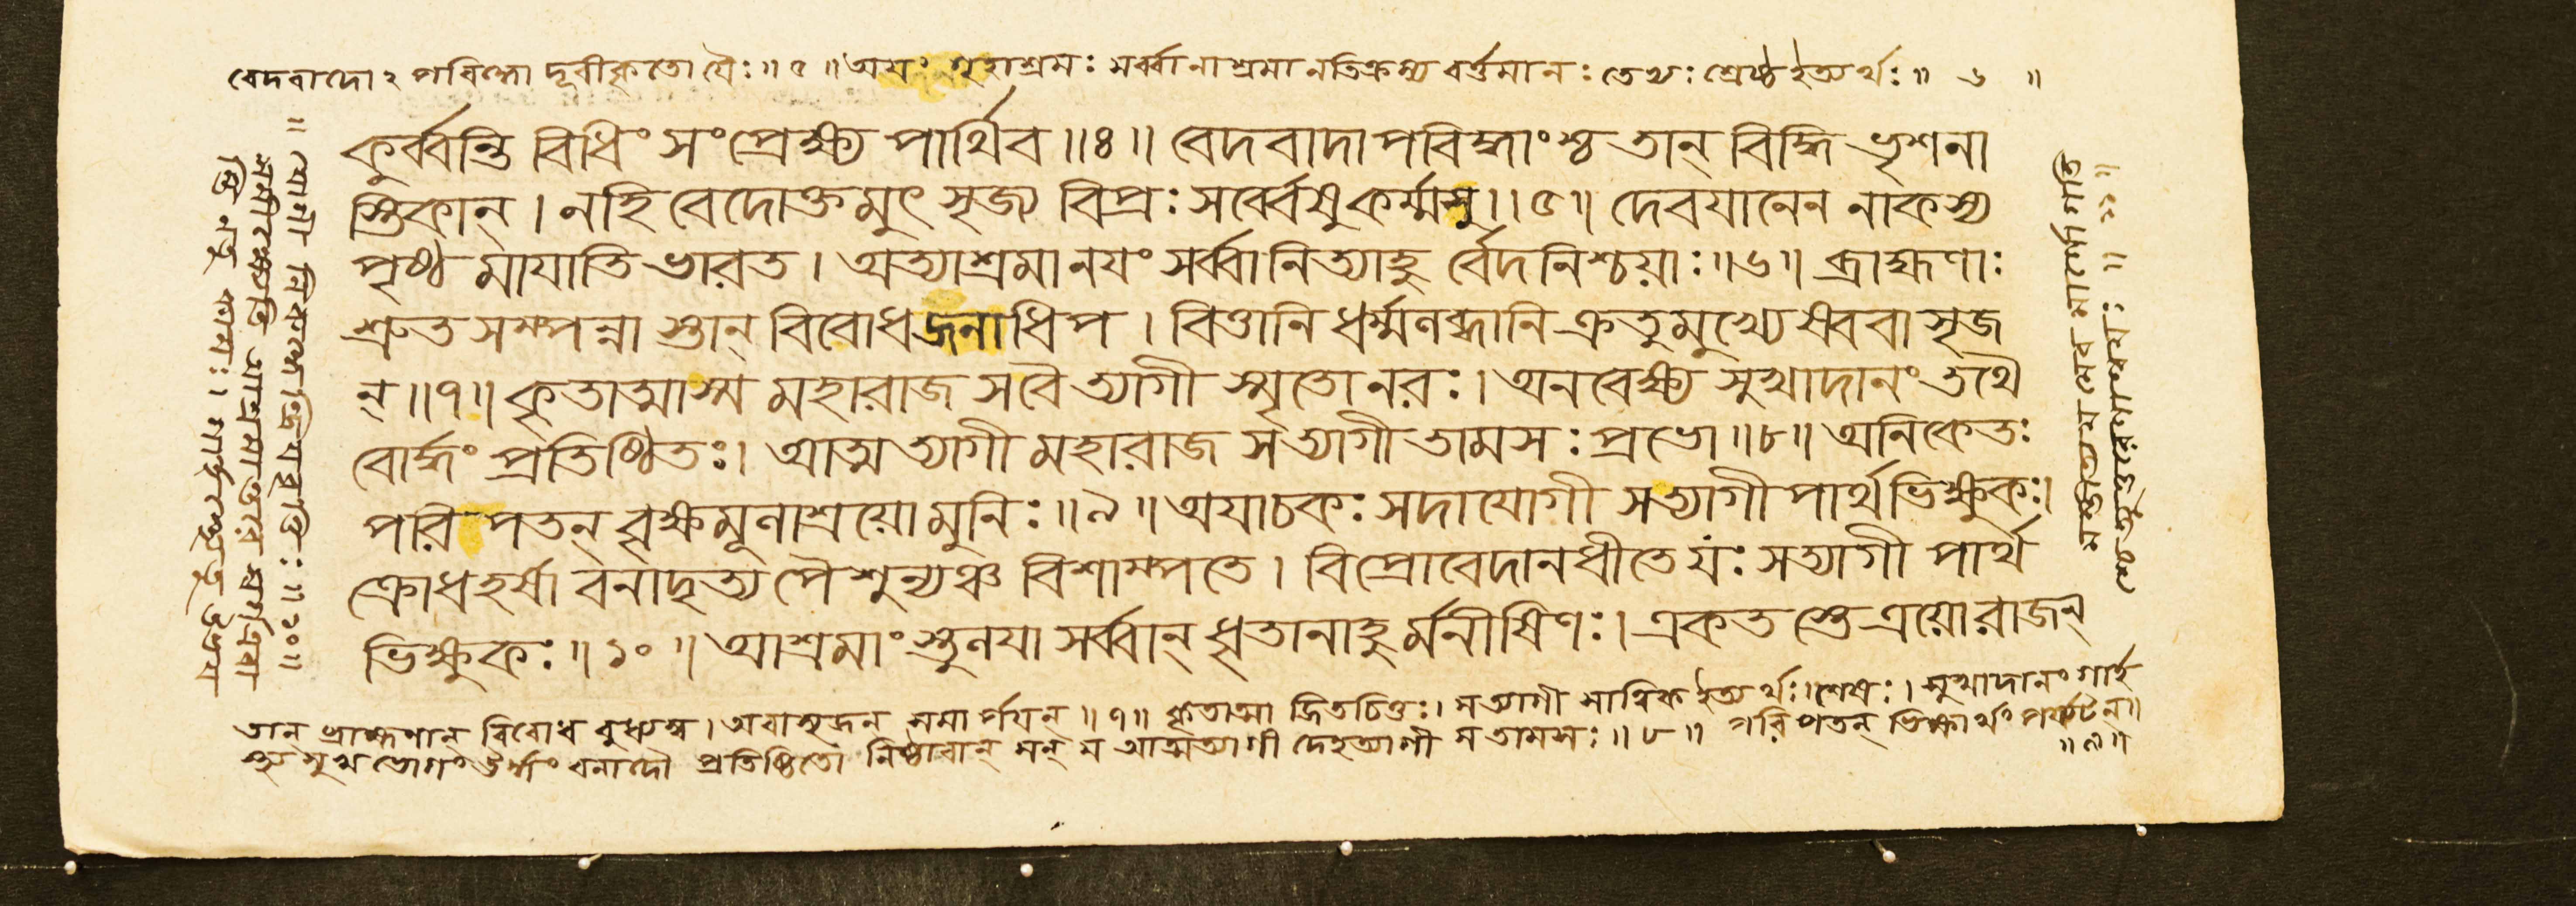 বেদবাদোঽপবিদ্ধো দূরীকৃতো যৈঃ॥৫॥ অয়ং গৃহাশ্রমঃ সর্ব্বানাশ্রমানতিক্রম্য বর্ত্তমানঃ তেভ্যঃ শ্রেষ্ঠ ইত্যর্থঃ॥ ৬ ॥
কুর্ব্বন্তি বিধিং সংপ্রেক্ষ্য পার্থিব॥৪॥ বেদবাদাপবিদ্ধাংশ্চ তান্ বিদ্ধি ভৃশনা
স্তিকান্। নহি বেদোক্তমুৎসৃজ্য বিপ্রঃ সর্ব্বেষু কর্ম্মসু॥৫॥ দেবযানেন নাকস্য
পৃষ্ঠমাযাতি ভারত। অত্যাশ্রমানয়ং সর্ব্বানিত্যাহু র্বেদনিশ্চয়াঃ॥৬॥ ব্রাহ্মণাঃ
শ্রুত সম্পন্না স্তান্ বিবোধ জনাধিপ। বিত্তানি ধর্ম্মলব্ধানি ক্রতুমুখ্যেষ্ববাসৃজ
ন্॥৭॥ কৃতাত্মাস মহারাজ সবৈ ত্যাগী স্মৃতো নরঃ। অনবেক্ষ্য সুখাদানং তথৈ
বোর্দ্ধং প্রতিষ্ঠিতঃ। আত্মত্যাগী মহারাজ সত্যাগী তামসঃ প্রভো॥৮॥ অনিকেতঃ
পরিপতন্ বৃক্ষমূলাশ্রয়ো মুনিঃ॥৯॥ অযাচকঃ সদাযোগী সত্যাগী পার্থ ভিক্ষুকঃ।
ক্রোধহর্ষা বনাদৃত্য পৈশুন্যঞ্চ বিশাম্পতে। বিপ্রো বেদানধীতে যঃ সত্যাগী পার্থ
ভিক্ষুকঃ॥১০॥ আশ্রমাংস্তুলয়া সর্ব্বান্ ধৃতানাহু র্মনীষিণঃ। একতস্তে ত্রয়ো রাজন্
তান্ ব্রাহ্মণান্ বিবোধ বুধ্যস্ব। অবাসৃজন্ সমার্পয়ন্॥৭॥ কৃতাত্মা জিতচিত্তঃ। সত্যাগী সাত্বিক ইত্যর্থঃ। শেষঃ। সুখাদানং গার্হ
স্থ্য সুখভোগং ঊর্দ্ধং বনাদৌ প্রতিষ্ঠিতো নিষ্ঠাবান্ সন্ স আত্মত্যাগী দেহত্যাগী স তামসঃ॥৮॥ পরিপতন্ ভিক্ষার্থং পর্য্যটন্॥
॥৯॥